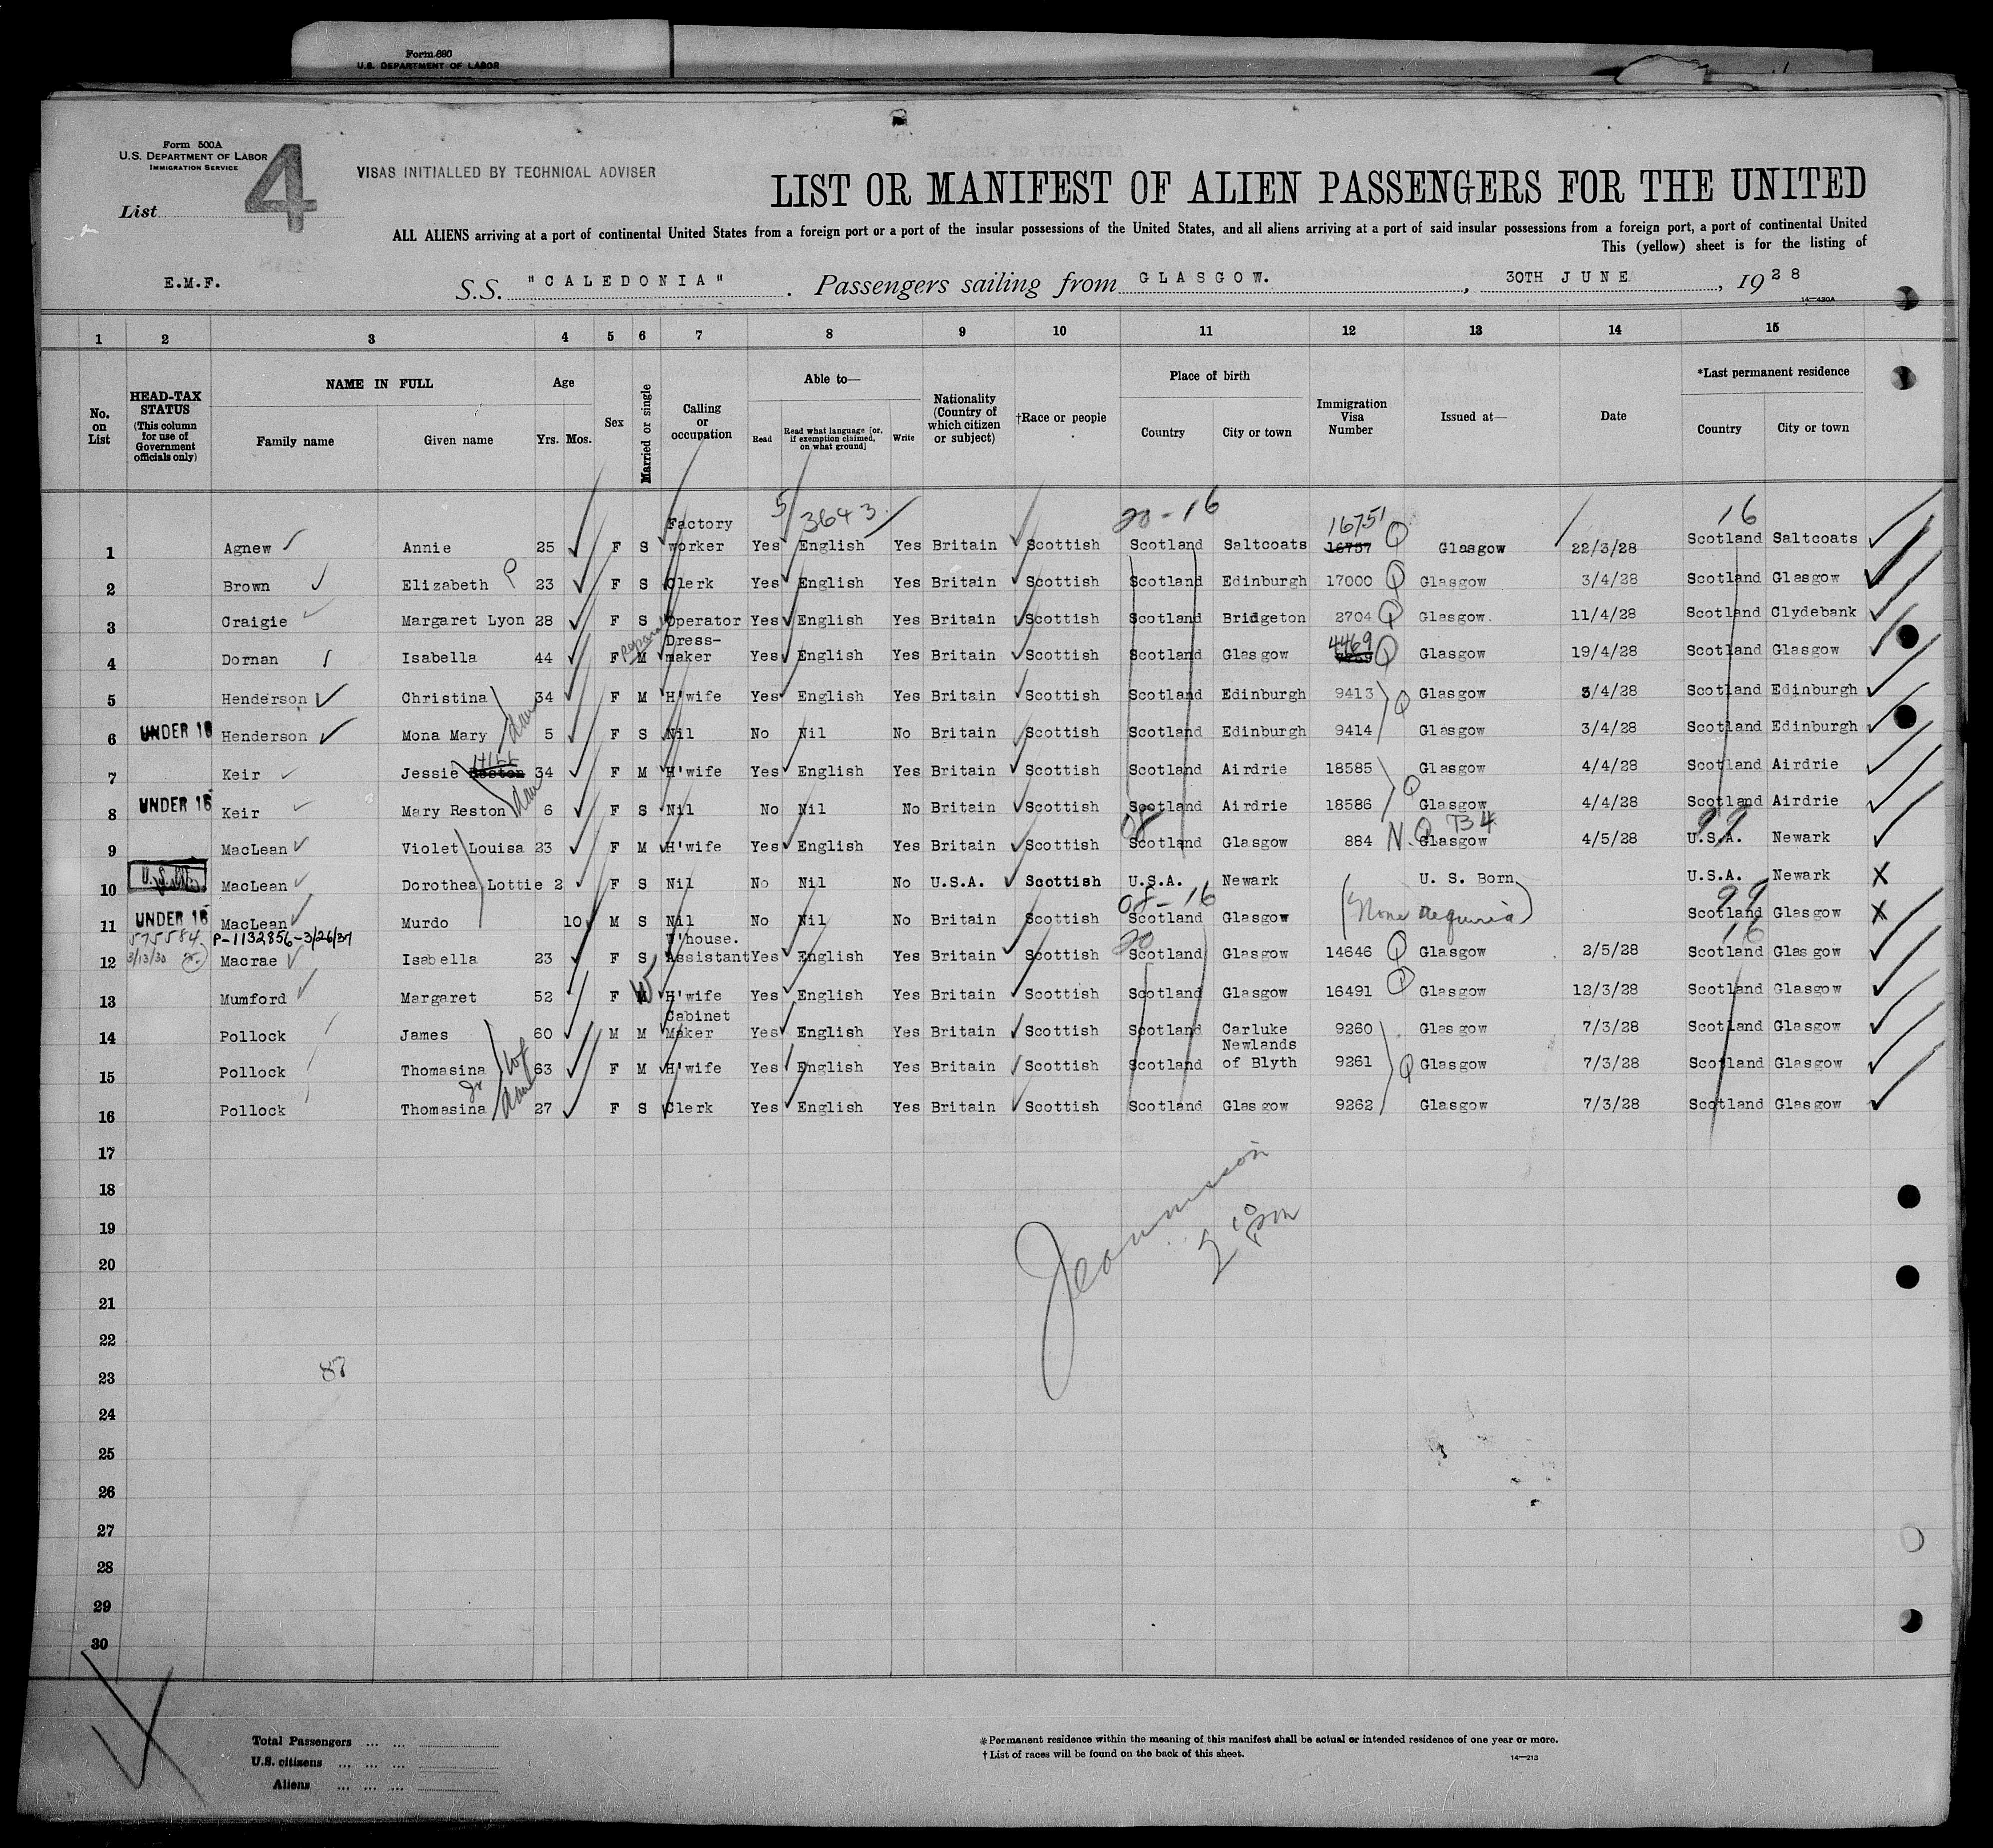 Form 680
U.S. DEPARTMENT OF LABOR
Form 500A
U.S. DEPARTMENT OF LABOR
IMMIGRATION SERVICE
4
VISAS INITIALLED BY TECHNICAL ADVISER
LIST OR MANIFEST OF ALIEN PASSENGERS FOR THE UNITED
List
ALL ALIENS arriving at a port of continental United States from a foreign port or a port of the insular possessions of the United States, and all aliens arriving at a port of said insular possessions from a foreign port, a port of continental United
This (yellow) sheet is for the listing of
E.M.F. S.S. "CALEDONIA" . Passengers sailing from GLASGOW. , 30TH JUNE , 1928
14—430A
1 2 3 4 5 6 7 8 9 10 11 12 13 14 15
No. on List
HEAD-TAX STATUS (This column for use of Government officials only)
NAME IN FULL Family name Given name
Age Yrs. Mos.
Sex
Married or single
Calling or occupation
Able to— Read Read what language [or, if exemption claimed, on what ground] Write
Nationality (Country of which citizen or subject)
†Race or people
Place of birth Country City or town
Immigration Visa Number
Issued at—
Date
*Last permanent residence Country City or town
5/3643 20-16 16751 16
1 Agnew Annie 25 F S Factory worker Yes English Yes Britain Scottish Scotland Saltcoats 16757 Q Glasgow 22/3/28 Scotland Saltcoats
2 Brown Elizabeth 23 F S Clerk Yes English Yes Britain Scottish Scotland Edinburgh 17000 Q Glasgow 3/4/28 Scotland Glasgow
3 Craigie Margaret Lyon 28 F S Operator Yes English Yes Britain Scottish Scotland Bridgeton 2704 Q Glasgow. 11/4/28 Scotland Clydebank
4 Dornan Isabella 44 F M Dress-maker Yes English Yes Britain Scottish Scotland Glasgow 4469 Q Glasgow 19/4/28 Scotland Glasgow
5 Henderson Christina 34 F M H'wife Yes English Yes Britain Scottish Scotland Edinburgh 9413 Q Glasgow 3/4/28 Scotland Edinburgh
6 UNDER 16 Henderson Mona Mary dau 5 F S Nil No Nil No Britain Scottish Scotland Edinburgh 9414 Glasgow 3/4/28 Scotland Edinburgh
7 Keir Jessie Reston 34 F M H'wife Yes English Yes Britain Scottish Scotland Airdrie 18585 Glasgow 4/4/28 Scotland Airdrie
8 UNDER 16 Keir Mary Reston dau 6 F S Nil No Nil No Britain Scottish Scotland Airdrie 18586 Q Glasgow 4/4/28 Scotland Airdrie
9 MacLean Violet Louisa 23 F M H'wife Yes English Yes Britain Scottish Scotland Glasgow 884 N.Q Glasgow 4/5/28 U.S.A. Newark
10 MacLean Dorothea Lottie 2 F S Nil No Nil No U.S.A. Scottish U.S.A. Newark U. S. Born U.S.A. Newark
11 UNDER 16 MacLean Murdo 10 M S Nil No Nil No Britain Scottish Scotland Glasgow (None required) Scotland Glasgow
575584 P-1132856-3/26/37
12 3/13/30 Macrae Isabella 23 F S W'house. Assistant Yes English Yes Britain Scottish Scotland Glasgow 14646 Q Glasgow 2/5/28 Scotland Glasgow
13 Mumford Margaret 52 F W H'wife Yes English Yes Britain Scottish Scotland Glasgow 16491 Q Glasgow 12/3/28 Scotland Glasgow
14 Pollock James 60 M M Cabinet Maker Yes English Yes Britain Scottish Scotland Carluke 9260 Glasgow 7/3/28 Scotland Glasgow
15 Pollock Thomasina wf 63 F M H'wife Yes English Yes Britain Scottish Scotland Newlands of Blyth 9261 Q Glasgow 7/3/28 Scotland Glasgow
16 Pollock Thomasina Jr dau 27 F S Clerk Yes English Yes Britain Scottish Scotland Glasgow 9262 Glasgow 7/3/28 Scotland Glasgow
17
18
19
20
21
22
23 87
24
25
26
27
28
29
30
Total Passengers ... ...
U.S. citizens ... ... ...
Aliens ... ... ...
*Permanent residence within the meaning of this manifest shall be actual or intended residence of one year or more.
†List of races will be found on the back of this sheet.
14—213